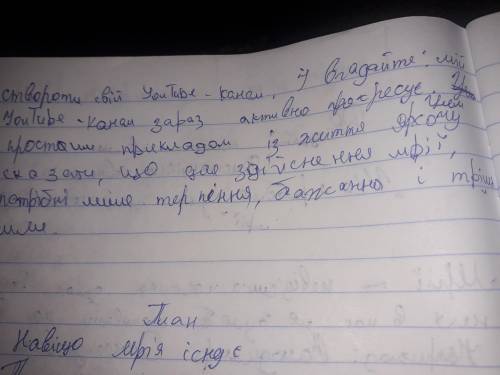 створити свій YouTube - канал. І вгадайте: мій
YouTube - канал зараз активно прогресує. Цим
простим прикладом із життя я хочу
сказати, що для здійснення мрії,
потрібні лише терпіння, бажання і трішки
План
Навіщо мрія існує